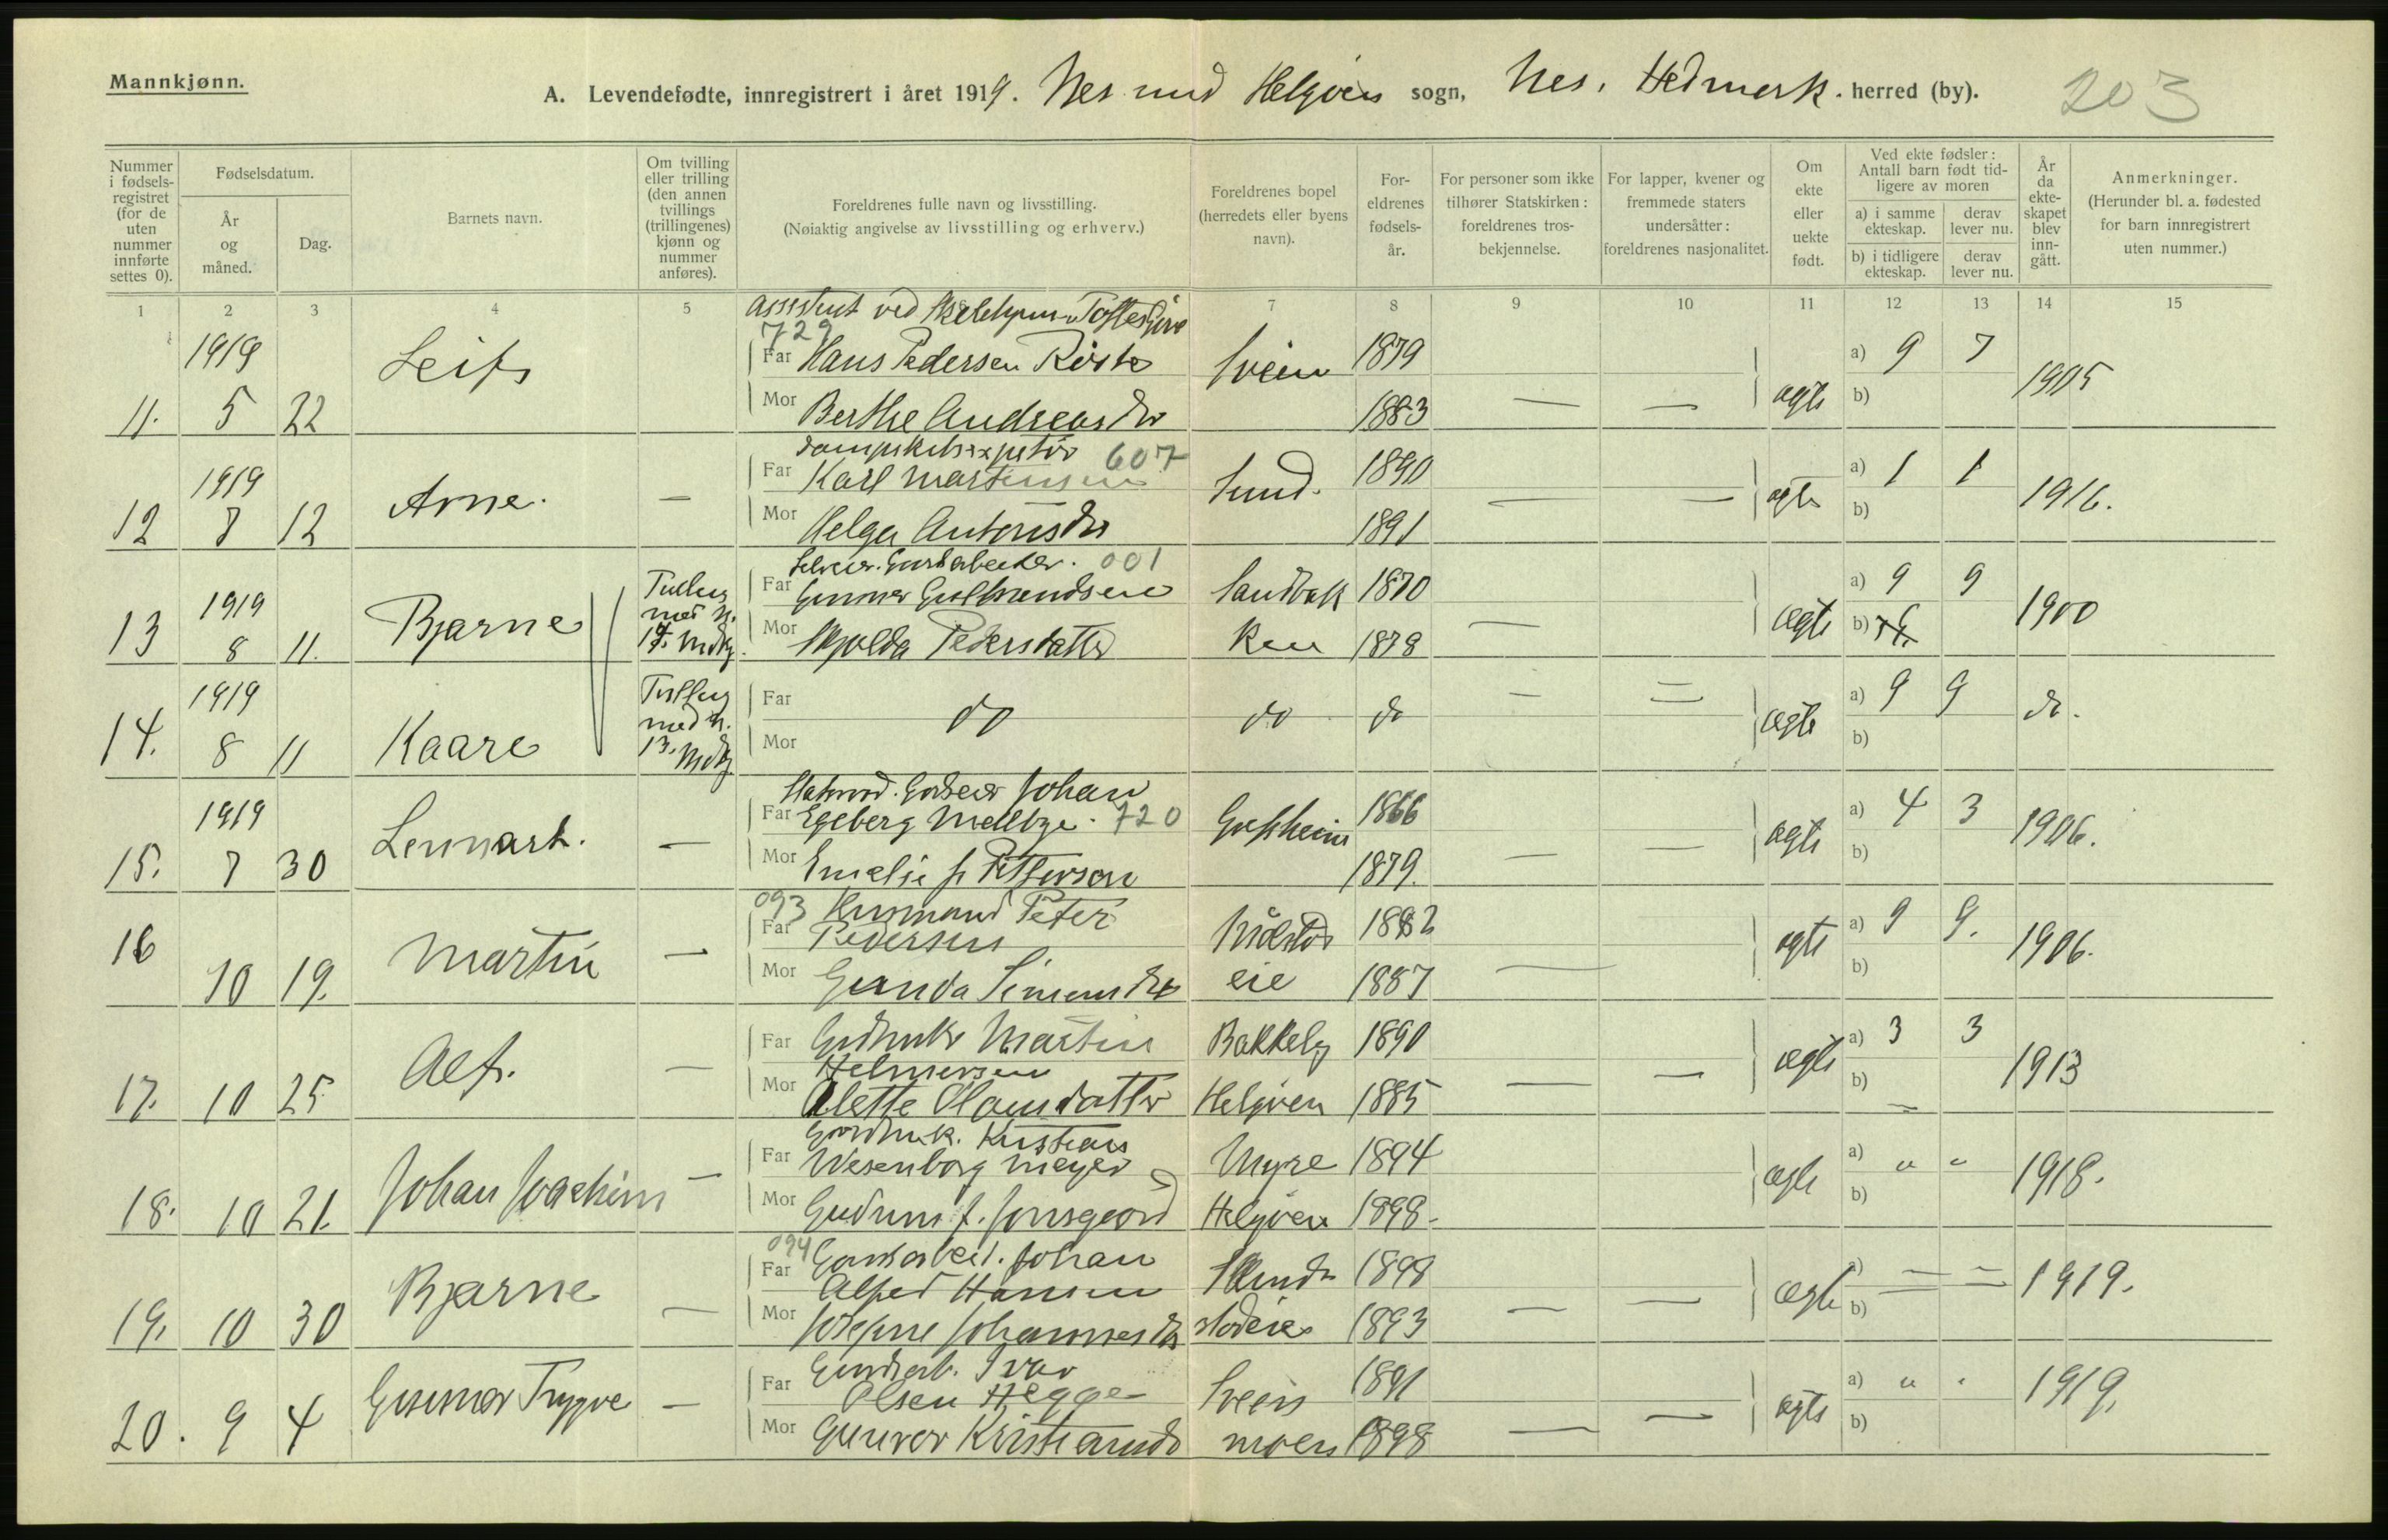 Mannkjønn.
A. Levendefødte, innregistrert i året 1919. Nes med Helgøen sogn, Nes, Hedmark. herred (by). 203
Nummer i fødsels-registret (for de uten nummer innførte settes 0).
Fødselsdatum.
År og måned.
Dag.
Barnets navn.
Om tvilling eller trilling (den annen tvillings (trillingenes) kjønn og nummer anføres).
Foreldrenes fulle navn og livsstilling.
(Nøiaktig angivelse av livsstilling og erhverv.)
Foreldrenes bopel (herredets eller byens navn).
For-eldrenes fødsels-år.
For personer som ikke tilhører Statskirken: foreldrenes tros-bekjennelse.
For lapper, kvener og fremmede staters undersåtter: foreldrenes nasjonalitet.
Om ekte eller uekte født.
Ved ekte fødsler: Antall barn født tid-ligere av moren
a) i samme ekteskap.
derav lever nu.
b) i tidligere ekteskap.
derav lever nu.
År da ekte-skapet blev inn-gått.
Anmerkninger.
(Herunder bl. a. fødested for barn innregistrert uten nummer.)
1 2 3 4 5 7 8 9 10 11 12 13 14 15
assistent ved
729
1919 Leif Far Hans Pedersen Svein 1879 a) 9 7 1905
11. 5 22 Mor Berthe Andreasdtr 1883 — — ægte b)
607
1919 Arne. — Far Karl Martinsen Sund. 1890 a) 1 1 1916.
12 7 12 Mor Helga Antonsdtr 1891 — — ægte b)
Selveier. Gardarbeider. 001
1919 Bjarne Tvilling med n. 14. Mdkj. Far Gunner Gulbrandsen Sandbak 1870 a) 9 9 1900
13 8 11. Mor Pedersdatter ken 1878 — ægte b)
1919 Tvilling med n. 13. Mdkj. Far do do do — — a) 9 9 do.
14. 8 11 Kaare Mor ægte b)
Statsraad. Godseier Johan
1919 Lennart. — Far Egeberg Mellbye. 720 Grefsheim 1866 a) 4 3 1906.
15. 7 30 Mor Emelie f. Petterson 1879. — — ægte b)
093 Husmand Peter
16 Martin — Far Pedersen 1882 a) 9 9. 1906.
10 19. Mor Gunda Simensdtr eie 1887 — ægte b)
Alf. — Far Grdbruker Martin Bakkely 1890 a) 3 3 1913
Helmersen
17. 10 25 Mor Olette Olausdatter Helgøen 1885 — — ægte b) —
Gaardbruk. Kristian
Johan Joachim — Far Wesenborg Meyer Myre 1894 a) " " 1918.
18. 10 21. Mor Gudrun f. Jonsgaard Helgøen 1898. ægte b)
094 Gaardsarbeid. Johan
Bjarne — Far Alfred Hansen 1898 a) — — 1919.
19. 10 30 Mor Johannesdtr stadeie 1893 — — ægte b)
Gardarb. Ivar
Gunnar Trygve — Far Olsen Hegge Svein 1891 a) " " 1919.
20. 9 4 Mor Gunvor Kristiansd moen 1898 — — ægte b)